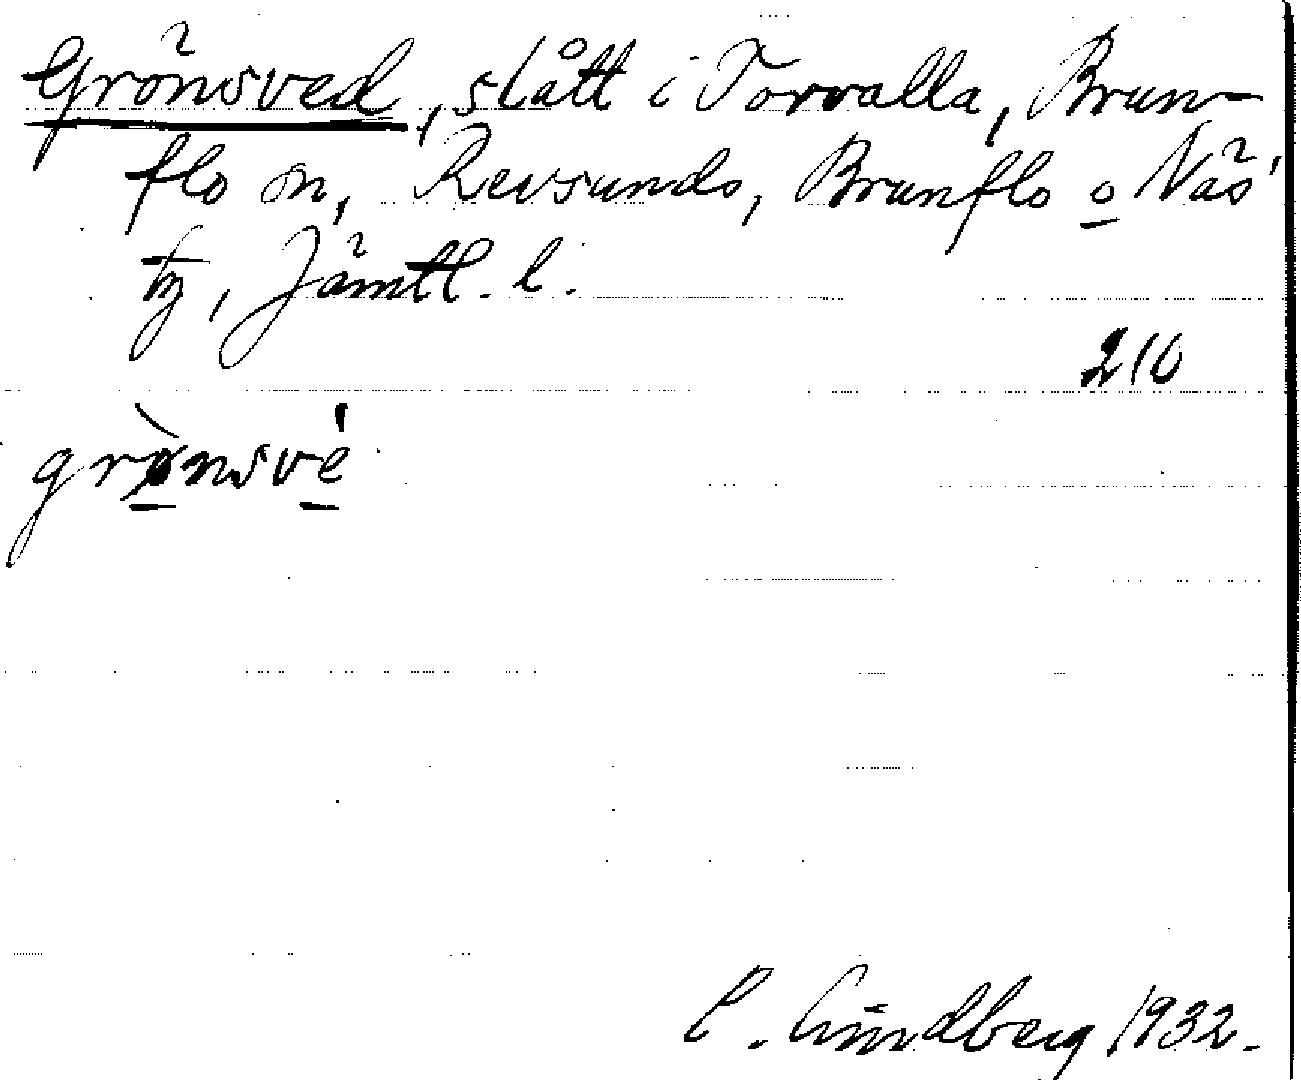 Grönsved, slått i Torvalla, Brun-
flo sn, Revsunds, Brunflo o Näs'
tg, Jämtl. l.
210
grònsvé
E. Lundberg 1932.